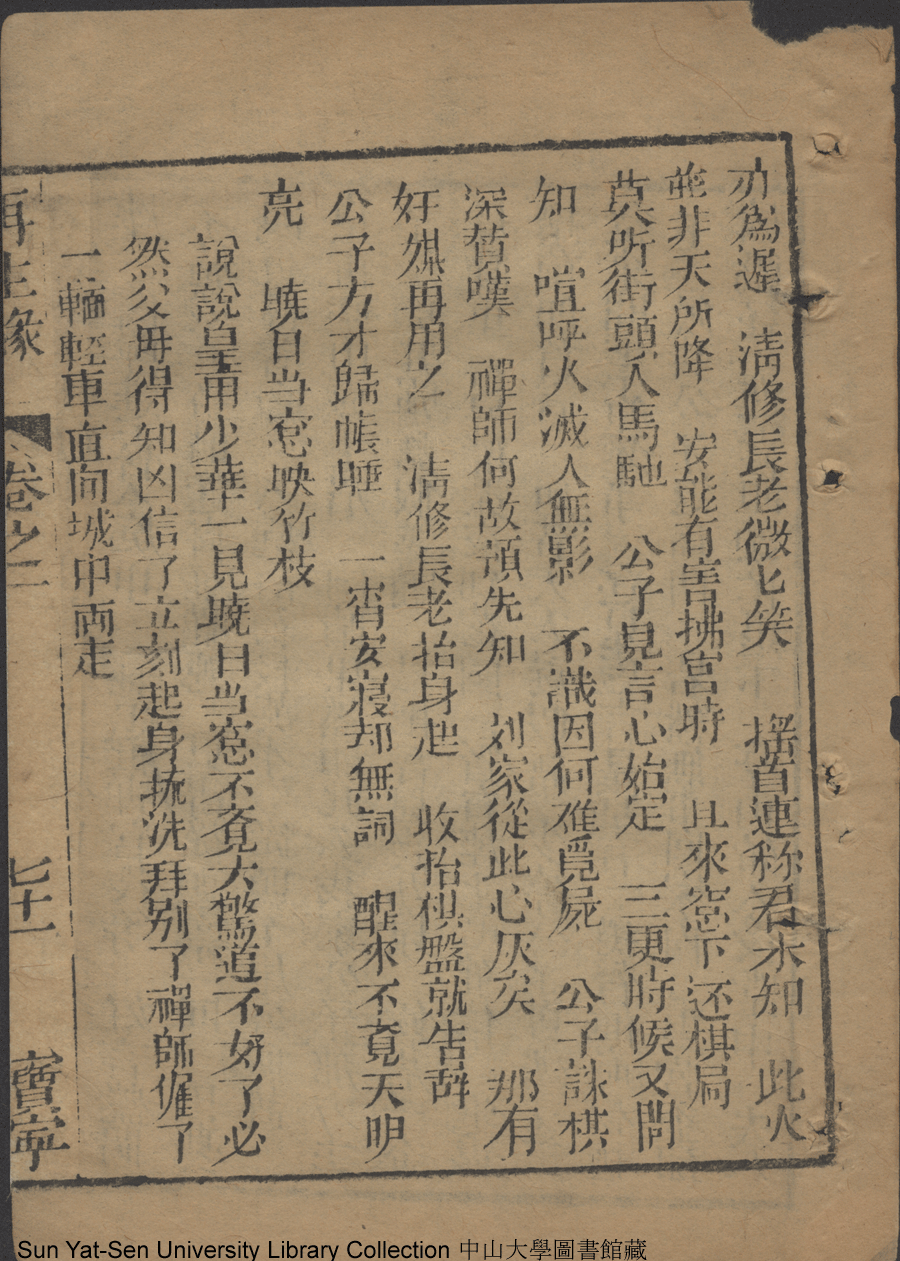 亦為遲　清修長老微匕笑　摇首連称君未知　此火
能非天所降　安能有害拂宫時　且來窓下还棋局
莫听街頭人馬馳　公子見言心始定　三更時候又聞
知　喧呼火滅人無影　不識因何难覓屍　公子誅棋
深賛嘆　禪師何故預先知　刘家從此心灰矣　那有
奸煩再用之　清修長老抬身起　收抬棋盤就告辞
公子方才歸帳睡　一宵安寢却無詞　醒來不竟天明
亮　曉日当窓映竹枝
說說皇甫少華一見曉日当窓不竟大驚道不好了必
然父母得知凶信了立刻起身梳洗拜别了禪師催了
一輛輕車直向城中而走
再生緣　卷之二　七十一　寳寕
Sun Yat-Sen University Library Collection 中山大學圖書館藏